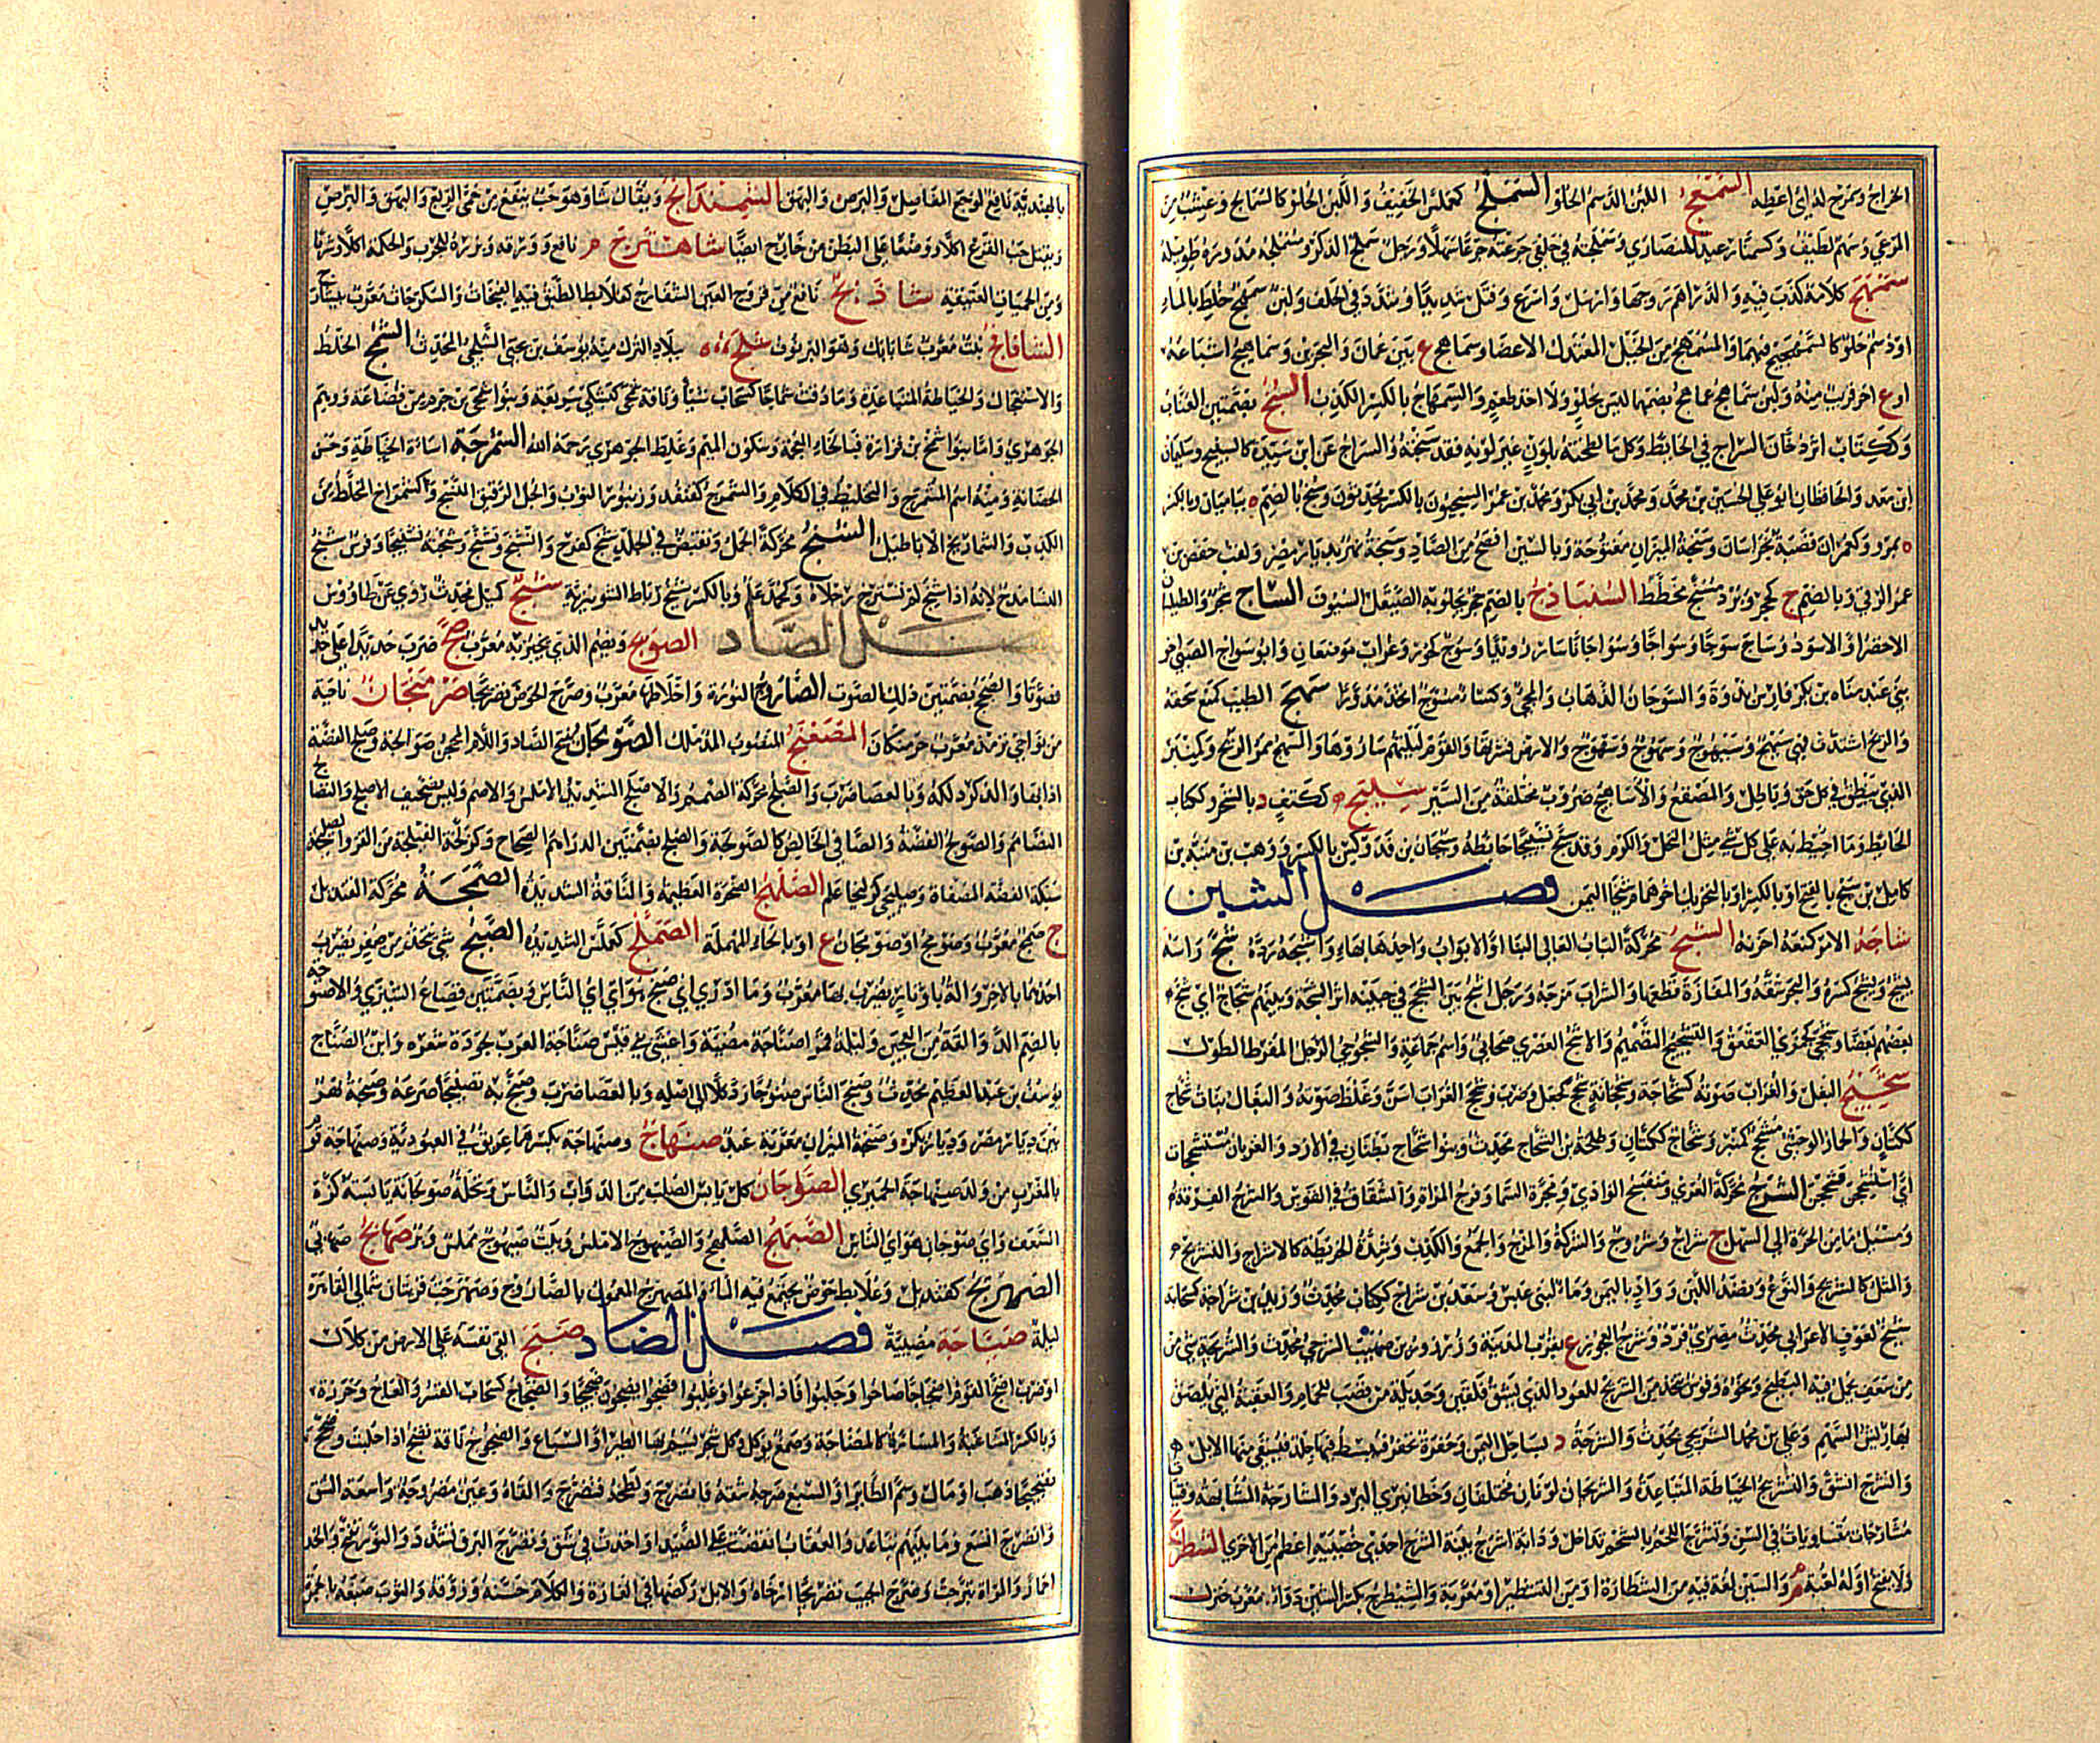 الخراج وسمرج له اي اعطه السمعج اللبن الدسم الحلو السملج كعملس الخفيف واللبن الحلو كالسمالج وعشب من
المرعى وسهم لطيف وكسنمار عيد للنصارى وسملجته في حلقي جرعته جرعا سهلا ورجل سملج الذكر ومسملجه مدوره طويله
سمهج كلامه كذب فيه والدراهم روجها وارسل واسرع وفتل شديدا وشدد في الحلف ولبن سمهج خلط بالماء
او دسم حلو كالسمهجيج فيهما والمسمهج من الخيل المعتدل الاعضا وسماهج ع بين عمان والبحرين وسماهيج اشباعه
او ع اخر قريب منه ولبن سماهج عماهج بضمهما ليس بحلو ولا اخذ طعم والسمهاج بالكسر الكذب السنج بضمتين العناب
وككتاب اثر دخان السراج في الحايط وكل ما لطخته بلون غير لونه فقد سنجته والسراج عن ابن سيده كالسنيج وسليمان
ابن معبد والحافظان ابو علي الحسين بن محمد ومحمد بن ابي بكر ومحمد بن عمر السنجيون بالكسر محدثون وسنج بالضم ه بباميان وبالكسر
ه بمرو وكعمران قصبة بخراسان وسنجة الميزان مفتوحة وبالسين افصح من الصاد وسنجة نهر بديار مضر ولقب حفص بن
عمر الرقي وبالضم ج كحجر وبرد مسنج مخطط السنباذج بالضم حجر يجلو به الصيقل السيوف الساج شجر والطيلسان
الاخضر او الاسود وساج سوجا وسواجا وسوجانا سار رويدا وسوج كحور وغراب موضعان وابو سواج الضبي اخو
بني عبد مناه بن بكر فارس بذوة والسوجان الذهاب والمجي وكساء مسوج اتخذ مدورا سهج الطيب كمنع سحقه
والريح اشتدت فهي سيهج وسيهوج وسهوج وسهوج والارض قشرتها والقوم ليلتهم ساروها والسهج ممر الريح وكمنبر
الذي ينطلق في كل حق وباطل والمصقع والاساهيج ضروب مختلفة من السير سيلج ككتف د بالشحر وككتاب
الحايط وما احيط به على كل شي مثل النخل والكرم وقد سيج تسييجا حائطه وسيجان بن فدوكس بالكسر ووهب بن منبه بن
كامل بن سيج بالفتح او بالكسر او بالتحريك اخو هما من شيخا اليمن فصل الشين
شاجه الامر كمنعه احزنه الشبج محركة الباب العالي البنا او الابواب واحدها بهاء واشبجه رده شج راسه
يشج ويشج كسره والبحر شقه والمفازة قطعها والشراب مزجه ورجل اشج بين الشجج في جبينه اثر الشجة وبينهم شجاج اي شج
بعضهم بعضا وشججى كجمزى العقعق والتشجيج التصميم والاشج العصري صحابي واسم جماعة والشجوجى الرجل المفرط الطول
شحيج البغل والغراب صوته كشحاجه وشحجانه شحج كجعل وضرب وشحج الغراب اسن وغلظ صوته والبغال بنات شحاج
ككتان والحمار الوحشي مشحج كمنبر وشحاج ككتان وطلحة بن الشحاج محدث وبنو شحاج بطنان في الازد والغربان مستشحجات
اي استشحجن فشحجن الشرج محركة العرى ومنفسح الوادي ومجرة السما وفرج المراة والشقاق في القوس والشرج الفرقة
ومسيل ماء من الحرة الى السهل ج شراج وشروج والشركة والمزج والجمع والكذب وشد الخريطة كالاشراج والتشريج
والمثل كالشريج والنوع ونضد اللبن وواد باليمن وماء لبني عبس وسعد بن شراج ككتاب محدث وزيد بن شراجة كسحابة
شيخ لعوف الاعرابي محدث مصري فرد وشرج العجوز ع بقرب المدينة وزرزور بن صهيب الشرجي محدث والشريجة شي من
سعف يحمل فيه البطيخ ونحوه وقوس تتخذ من الشريج للعود الذي يشق فلقين وجديلة من قصب للحمام والعقبة التي يلصق
بها ريش السهم وعلي بن محمد الشريجي محدث والشرجة د بساحل اليمن وحفرة تحفر فيبسط فيها جلد فتسقى منها الابل
والشرج انشق والتشريج الخياطة المتباعدة والشريجان لونان مختلفان وخطا نيري البرد والشارجة المشابهة وفتيات
مشارجات متساويات في السن وتشرج اللحم بالشحم تداخل ودابة اشرج بينة الشرج احدى خصييه اعظم من الاخرى الشطرنج
ولا يفتح اوله لعبة م والسين لغة فيه من الشطارة او من التشطير او معربة والشيطرج بكسر الشين دواء معرب جترك
بالهندية نافع لوجع المفاصل والبرص والبهق الشهدانج ويقال شاو هو حب ينفع من حمى الربع والبهق والبرص
ويقتل حب القرع اكلا ووضعا على البطن من خارج ايضا شاهترج م نافع وورقه وبزره للجرب والحكة اكلا وشربا
ومن الحميات العتيقة شاذنج نافع من قروح العين الشفارج كعلابط الطبق فيه الفيخات والسكرجات معرب بيشارج
الشافانج نبت معرب شابابك وهو البرنوف شلج ه ببلاد الترك منها يوسف بن يحيى الشلجي المحدث الشمج الخلط
والاستعجال والخياطة المتباعدة وما ذقت شماجا كسحاب شيئا وناقة شمجى كبشكى سريعة وبنو شمجى بن جرم من قضاعة ووهم
الجوهري واما بنو شمخ بن فزارة فبالخاء المعجمة وسكون الميم وغلط الجوهري رحمه الله الشمرجة اساءة الخياطة وحسن
الحضانة ومنه اسم المشمرج والتخليط في الكلام والشمرج كقنفذ وزنبور الثوب والجل الرقيق النسج وكشمراخ المخلط من
الكذب والشماريج الاباطيل الشنج محركة الجمل وتقبض في الجلد شنج كفرح وانشنج وتشنج وشنجته تشنيجا وفرس شنج
النسا مدح لانه اذا شنج لم تسترخ رجلاه وكمحمد علم وبالكسر شنج رباط الشونيزية شيج كميل محدث روى عن طاووس
فصل الصاد الصوبج ويضم الذي يخبز به معرب صج ضرب حديدا على حديد
فصوتا والصجج بضمتين ذلك الصوت الصاروج النورة واخلاطها معرب وصرج الحوض تصريجا صرمنجان ناحية
من نواحي ترمذ معرب جرمنكان المصعنج المنصوب المدملك الصولجان بفتح الصاد واللام المحجن ج صوالجة وصلج الفضة
اذابها والذكر دلكه وبالعصا ضرب والصلج محركة الصمم والاصلج الشديد الاملس والاصم وليس تصحيف الاصلخ والتصالج
التصامم والصولج الفضة والصافي الخالص كالصولجة والصلج بضمتين الدراهم الصحاح وكزلخة الفيلجة من القز والصليجة
سبيكة الفضة المصفاة وصليجى كزليخا علم الصلهج الصخرة العظيمة والناقة الشديدة الصمجة محركة القنديل
ج صمج معرب وصومج او صومجان ع او بالحاء المهملة الصملج كعملس الشديد الصنج شي يتخذ من صفر يضرب
احدهما بالاخر والة باوتار يضرب بها معرب وما ادري اي صنج هو اي اي الناس وبضمتين قصاع الشيزى والاصنوجة
بالضم الدوالقة من العجين وليلة قمرا صناجة مضيئة واعشى بني قيس صناجة العرب لجودة شعره وابن الصناج
يوسف بن عبد العظيم محدث وصنج الناس صنوجا رد كلا الى اصله وبالعصا ضرب وصنج به تصنيجا صرعه وصنجة نهر
بين ديار مضر وديار بكر وصنجة الميزان معربة عبد صنهاج وصنهاجة بكسرهما عريق في العبودية وصنهاجة قوم
بالمغرب من ولد صنهاجة الحميري الصوجان كل يابس الصلب من الدواب والناس ونخلة صوجانة يابسة كزة
السعف واي صوجان هو اي الناس الصيهج الصلهج والصيهوج الاملس وبيت صيهوج مملس وبر صهابج صهابي
الصهريج كقنديل وعلابط حوض يجتمع فيه الماء والمصهرج المعمول بالصاروج وصهرجت قريتان شمالي القاهرة
ليلة صياجة مضيئة فصل الضاد ضبج القى نفسه على الارض من كلال
او ضرب اضج القوم اضجاجا صاحوا وجلبوا فاذا جزعوا وغلبوا فضجوا يضجون ضجيجا والضجاج كسحاب القسر والعاج وخرزة
وبالكسر المشاغبة والمشارة كالمضاجة وصمغ يوكل وكل شجر يسم بها الطير او السباع والضجوج ناقة تضج اذا حلبت وضجج
تضجيجا ذهب او مال وسم الطائر او السبع ضرجه شقه فانضرج ولطخه فتضرج والقاه وعين مضروجة واسعة الشق
وانضرج اتسع وما بينهم تباعد والعقاب انقضت على الصيد او اخذت في شق وتضرج البرق تشقق والنور تفتح والخد
احمار والمراة تبرجت وضرج الجيب تضريجا ارخاه والابل ركضها في الغارة والكلام حسنه وزوقه والثوب صبغه بالحمرة